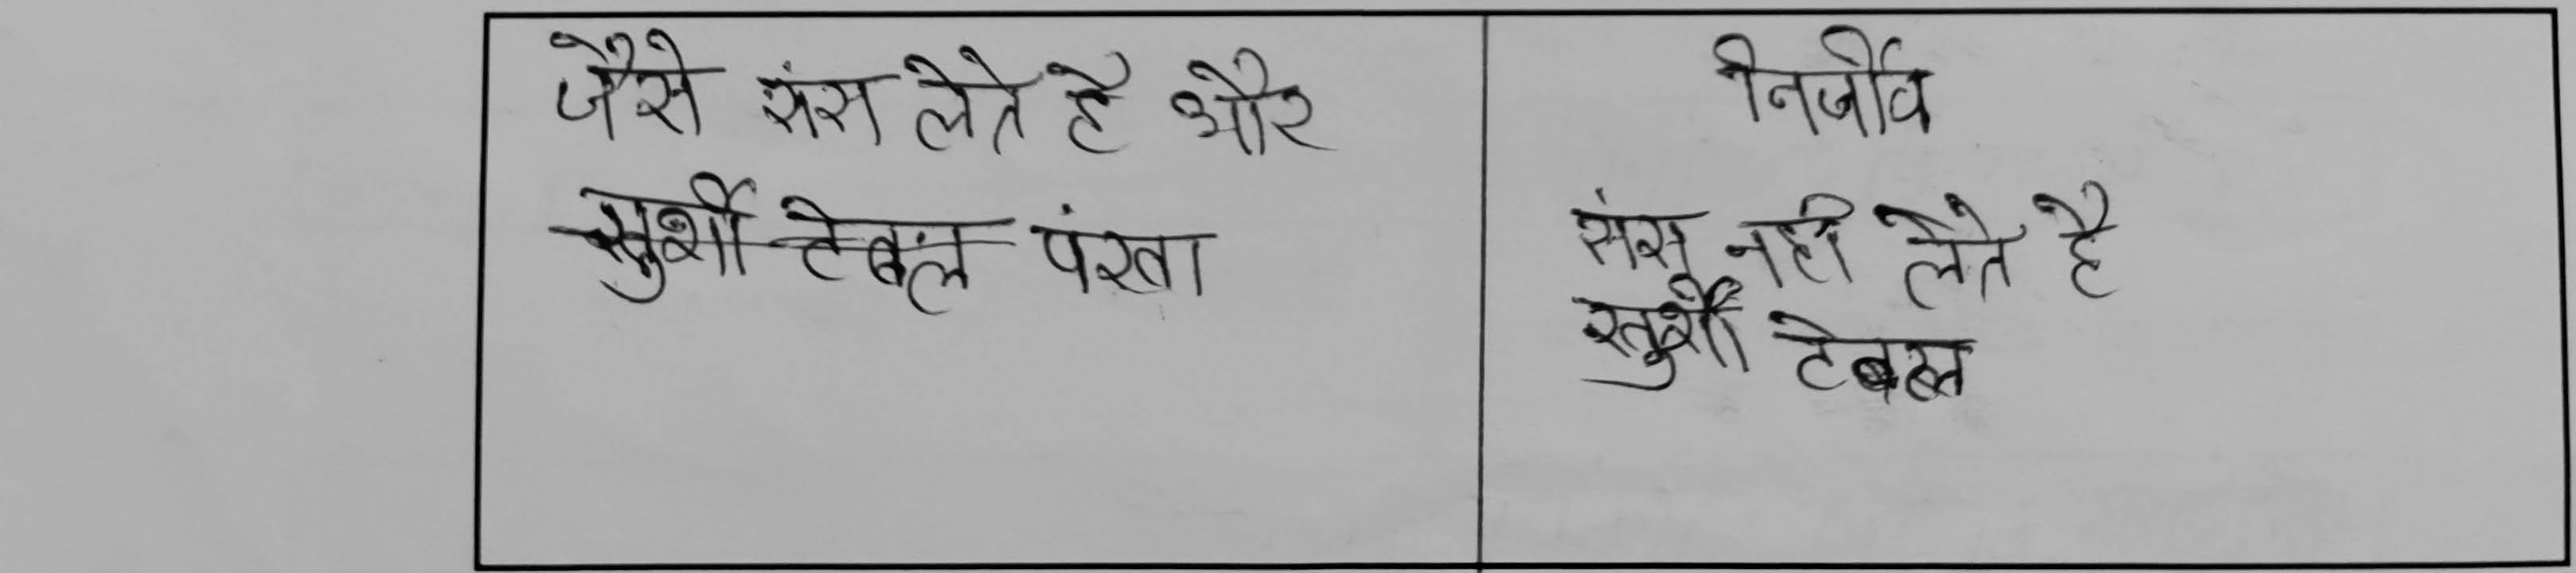 जैसे संस लेते है और
खुर्शी टेबल पंखा
निर्जीव
संस नही लेते है
खुर्शी टेबल